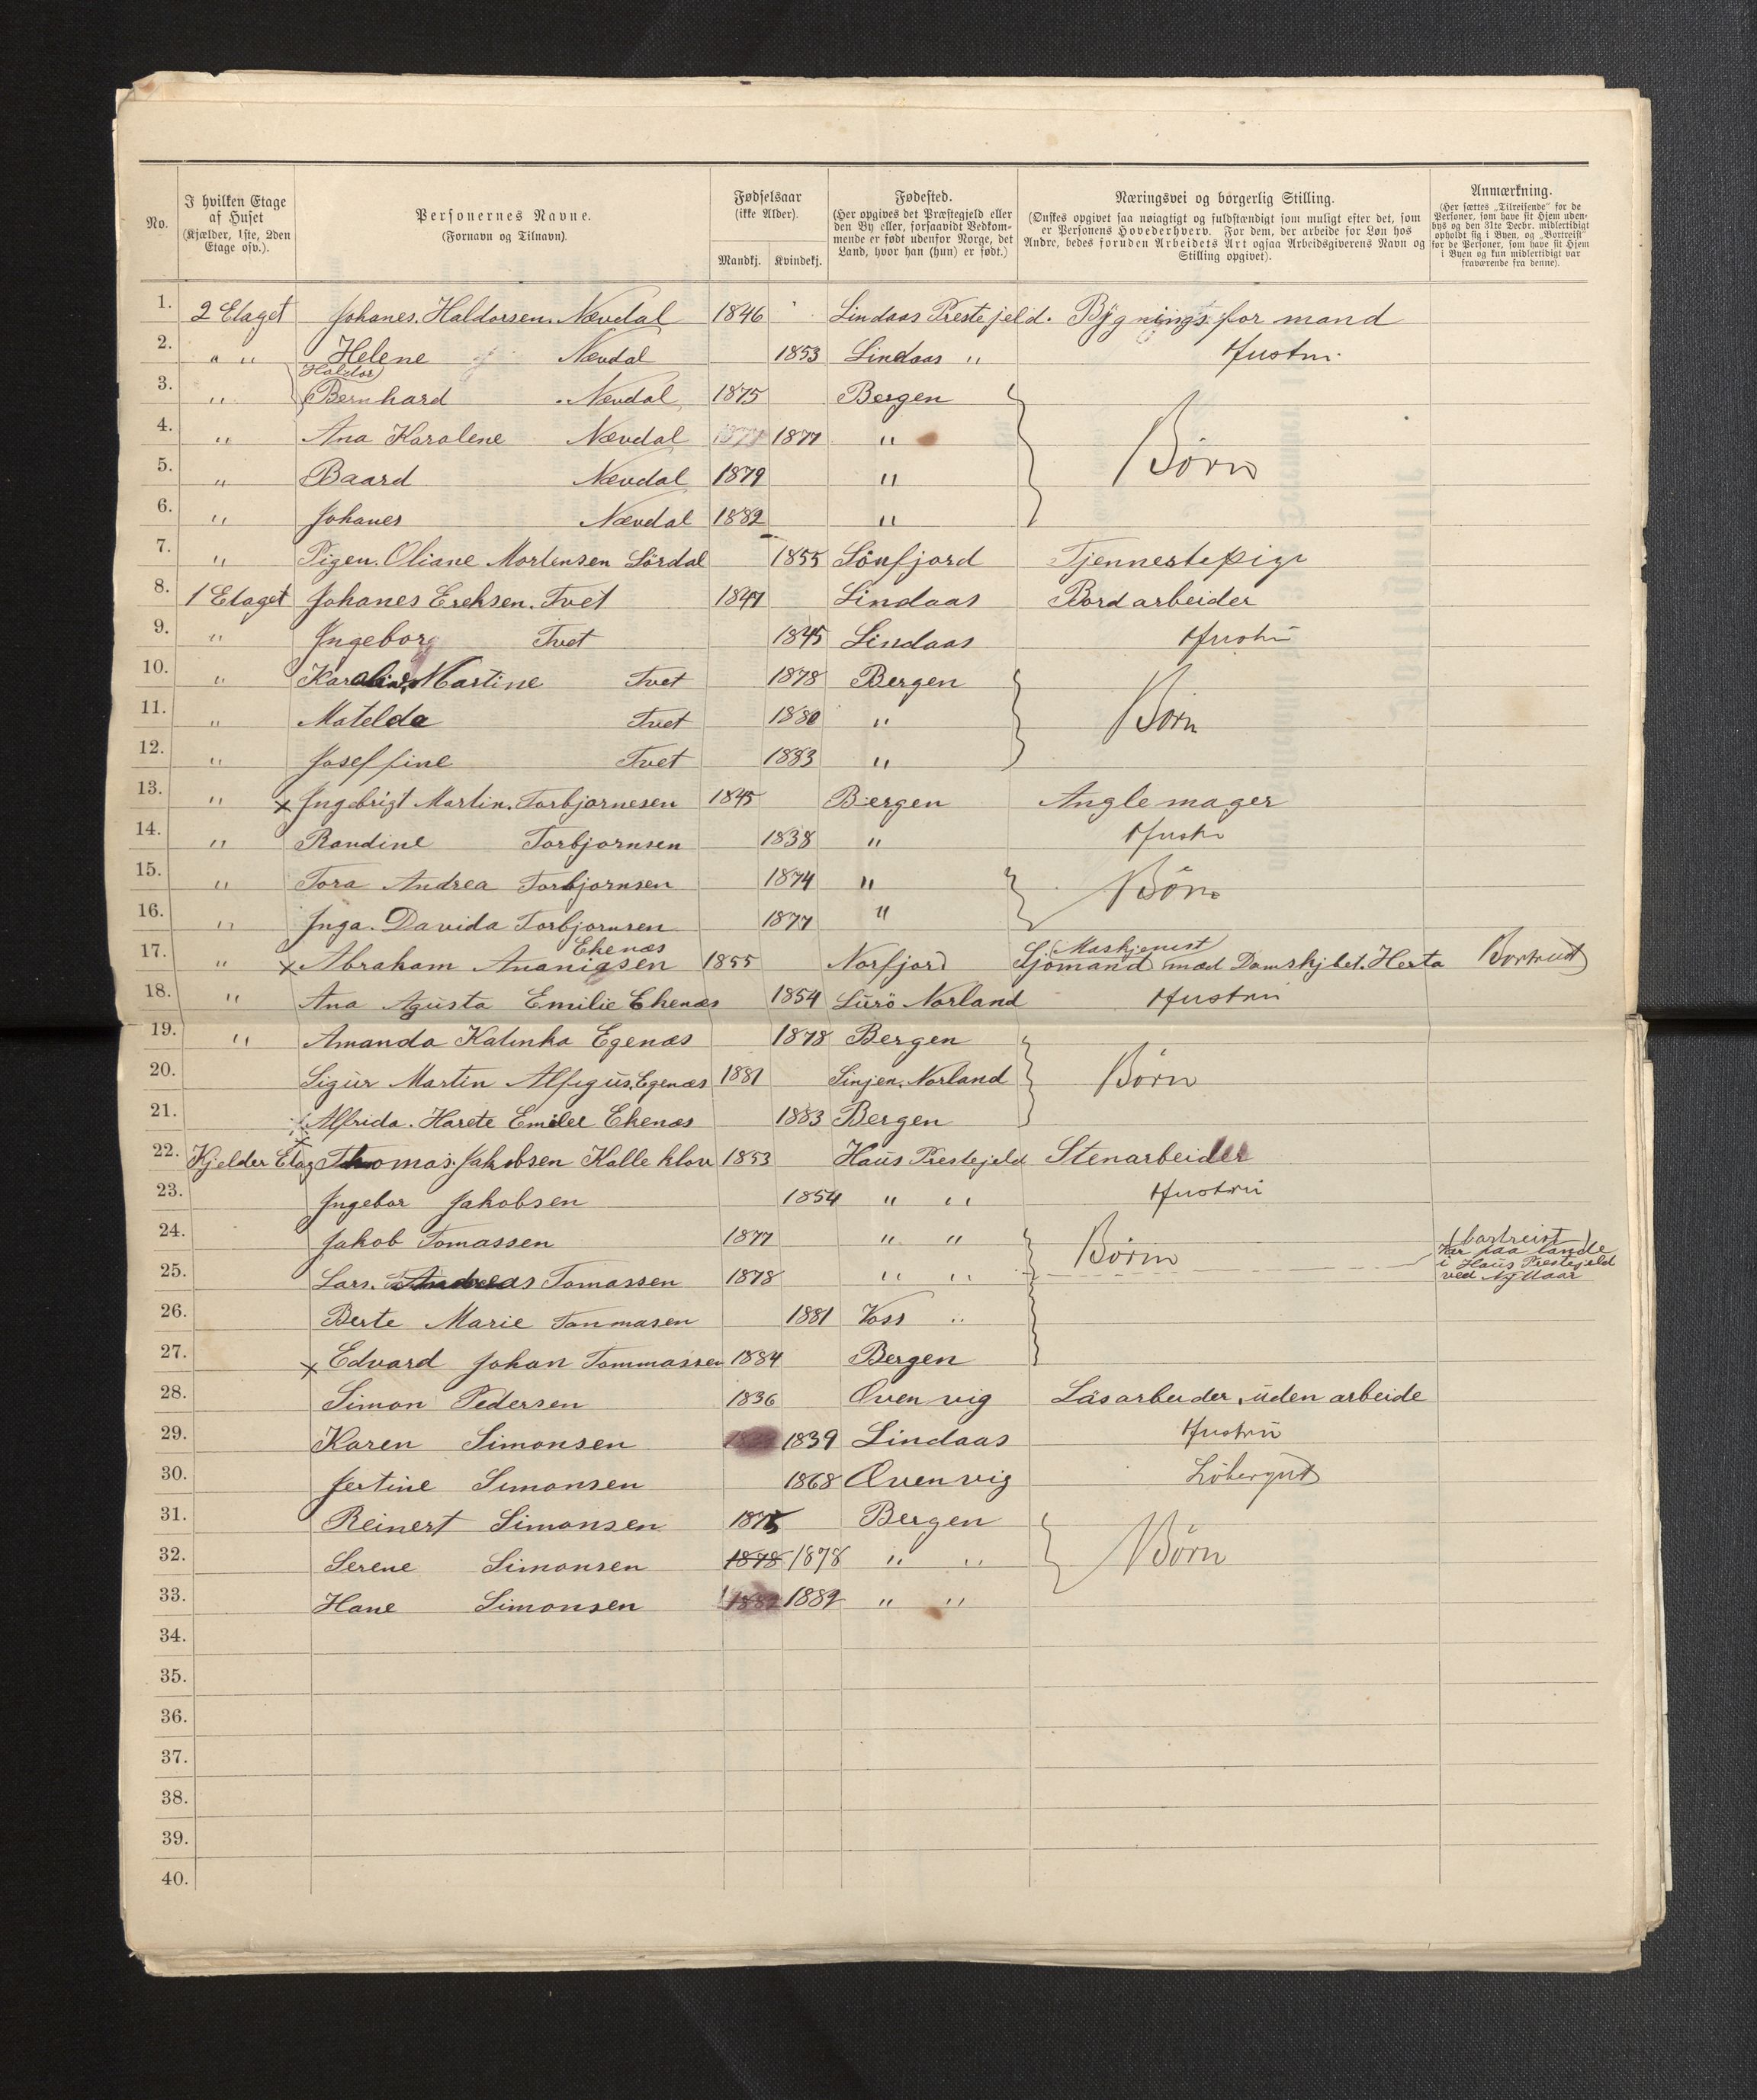 No.
I hvilken Etage af Huset (Kjælder, 1ste, 2den Etage osv.).
Personernes Navne. (Fornavn og Tilnavn).
Fødselsaar (ikke Alder). Mandkj. Kvindekj.
Fødested. (Her opgives det Præstegjeld eller den By eller, forsaavidt Vedkommende er født udenfor Norge, det Land, hvor han (hun) er født.)
Næringsvei og borgerlig Stilling. (Ønskes opgivet saa nøiagtigt og fuldstændigt som muligt efter det, som er Personens Hovederhverv. For dem, der arbeide for Løn hos Andre, bedes foruden Arbeidets Art ogsaa Arbeidsgiverens Navn og Stilling opgivet).
Anmærkning. (Her sættes „Tilreisende" for de Personer, som have sit Hjem udenbys og den 31te Decbr. midlertidigt opholdt sig i Byen, og „Bortreist" for de Personer, som have sit Hjem i Byen og kun midlertidigt var fraværende fra denne).
1. 2 Etaget Johanes. Haldorsen. Nævdal 1846 Lindaas Prestejeld. Bÿgnings for mand
2. " " Helene Nævdal 1853 Lindaas " Hustru
3. " (Haldor) Bernhard Nævdal 1875 Bergen
4. " Ana Karalene Nævdal 1877 " Børn
5. " Baard Nævdal 1879 "
6. " Johanes Nævdal 1882 "
7. " Pigen. Oliane Mortensen Lördal 1855 Sönfjord Tjennestepige
8. 1 Etaget Johanes Ereksen. Tvet 1847 Lindaas Bordarbeider
9. " Ingeborg Tvet 1845 Lindaas Hustru
10. " Martine Tvet 1878 Bergen
11. " Matelda Tvet 1880 " Børn
12. " Joseffine Tvet 1883 "
13. " x Ingebrigt Martin. Torbjørnesen 1845 Bergen Anglemager
14. " Randine Torbjornsen 1838 " Hustr
15. " Tora Andrea Torbjornsen 1874 " Børn
16. " Inga. Davida Torbjornsen 1877 "
17. " x Abraham Ananiasen Ekenæs 1855 Norfjord Sjömand (Maskjenist) mæd Damskjbet. Herta Bortreist
18. " Ana Agusta Emilie Ekenæs 1854 Lurö Norland Hustru
19. " Amanda Katinka Egenæs 1878 Bergen
20. Sigur Martin Egenæs 1881 Sinjen. Norland Børn
21. Alfrida. Harete Emelee Ekenæs 1883 Bergen
22. Kjelder Etag Thomas. Jakobsen Kalleklov 1853 Haus Prestejeld Stenarbeider
23. Ingebor Jakobsen 1854 " " Hustru
24. Jakob Tomassen 1877 " " Børn (bortreist)
25. Lars. Andreas Tomassen 1878 " " Her paa lande i Haus Prestejeld ved Nyttaar
26. Berte Marie Tonmasen 1881 Voss "
27. x Edvard Johan Tommassen 1884 Bergen
28. Simon Pedersen 1836 Evenvig Läsarbeider, uden arbeide
29. Karen Simonsen 1839 Lindaas Hustru
30. Jertine Simonsen 1868 Evenvig
31. Reinert Simonsen 1875 Bergen
32. Serene Simonsen 1878 1878 " " Børn
33. Hane Simonsen 1882 1882 " "
34.
35.
36.
37.
38.
39.
40.